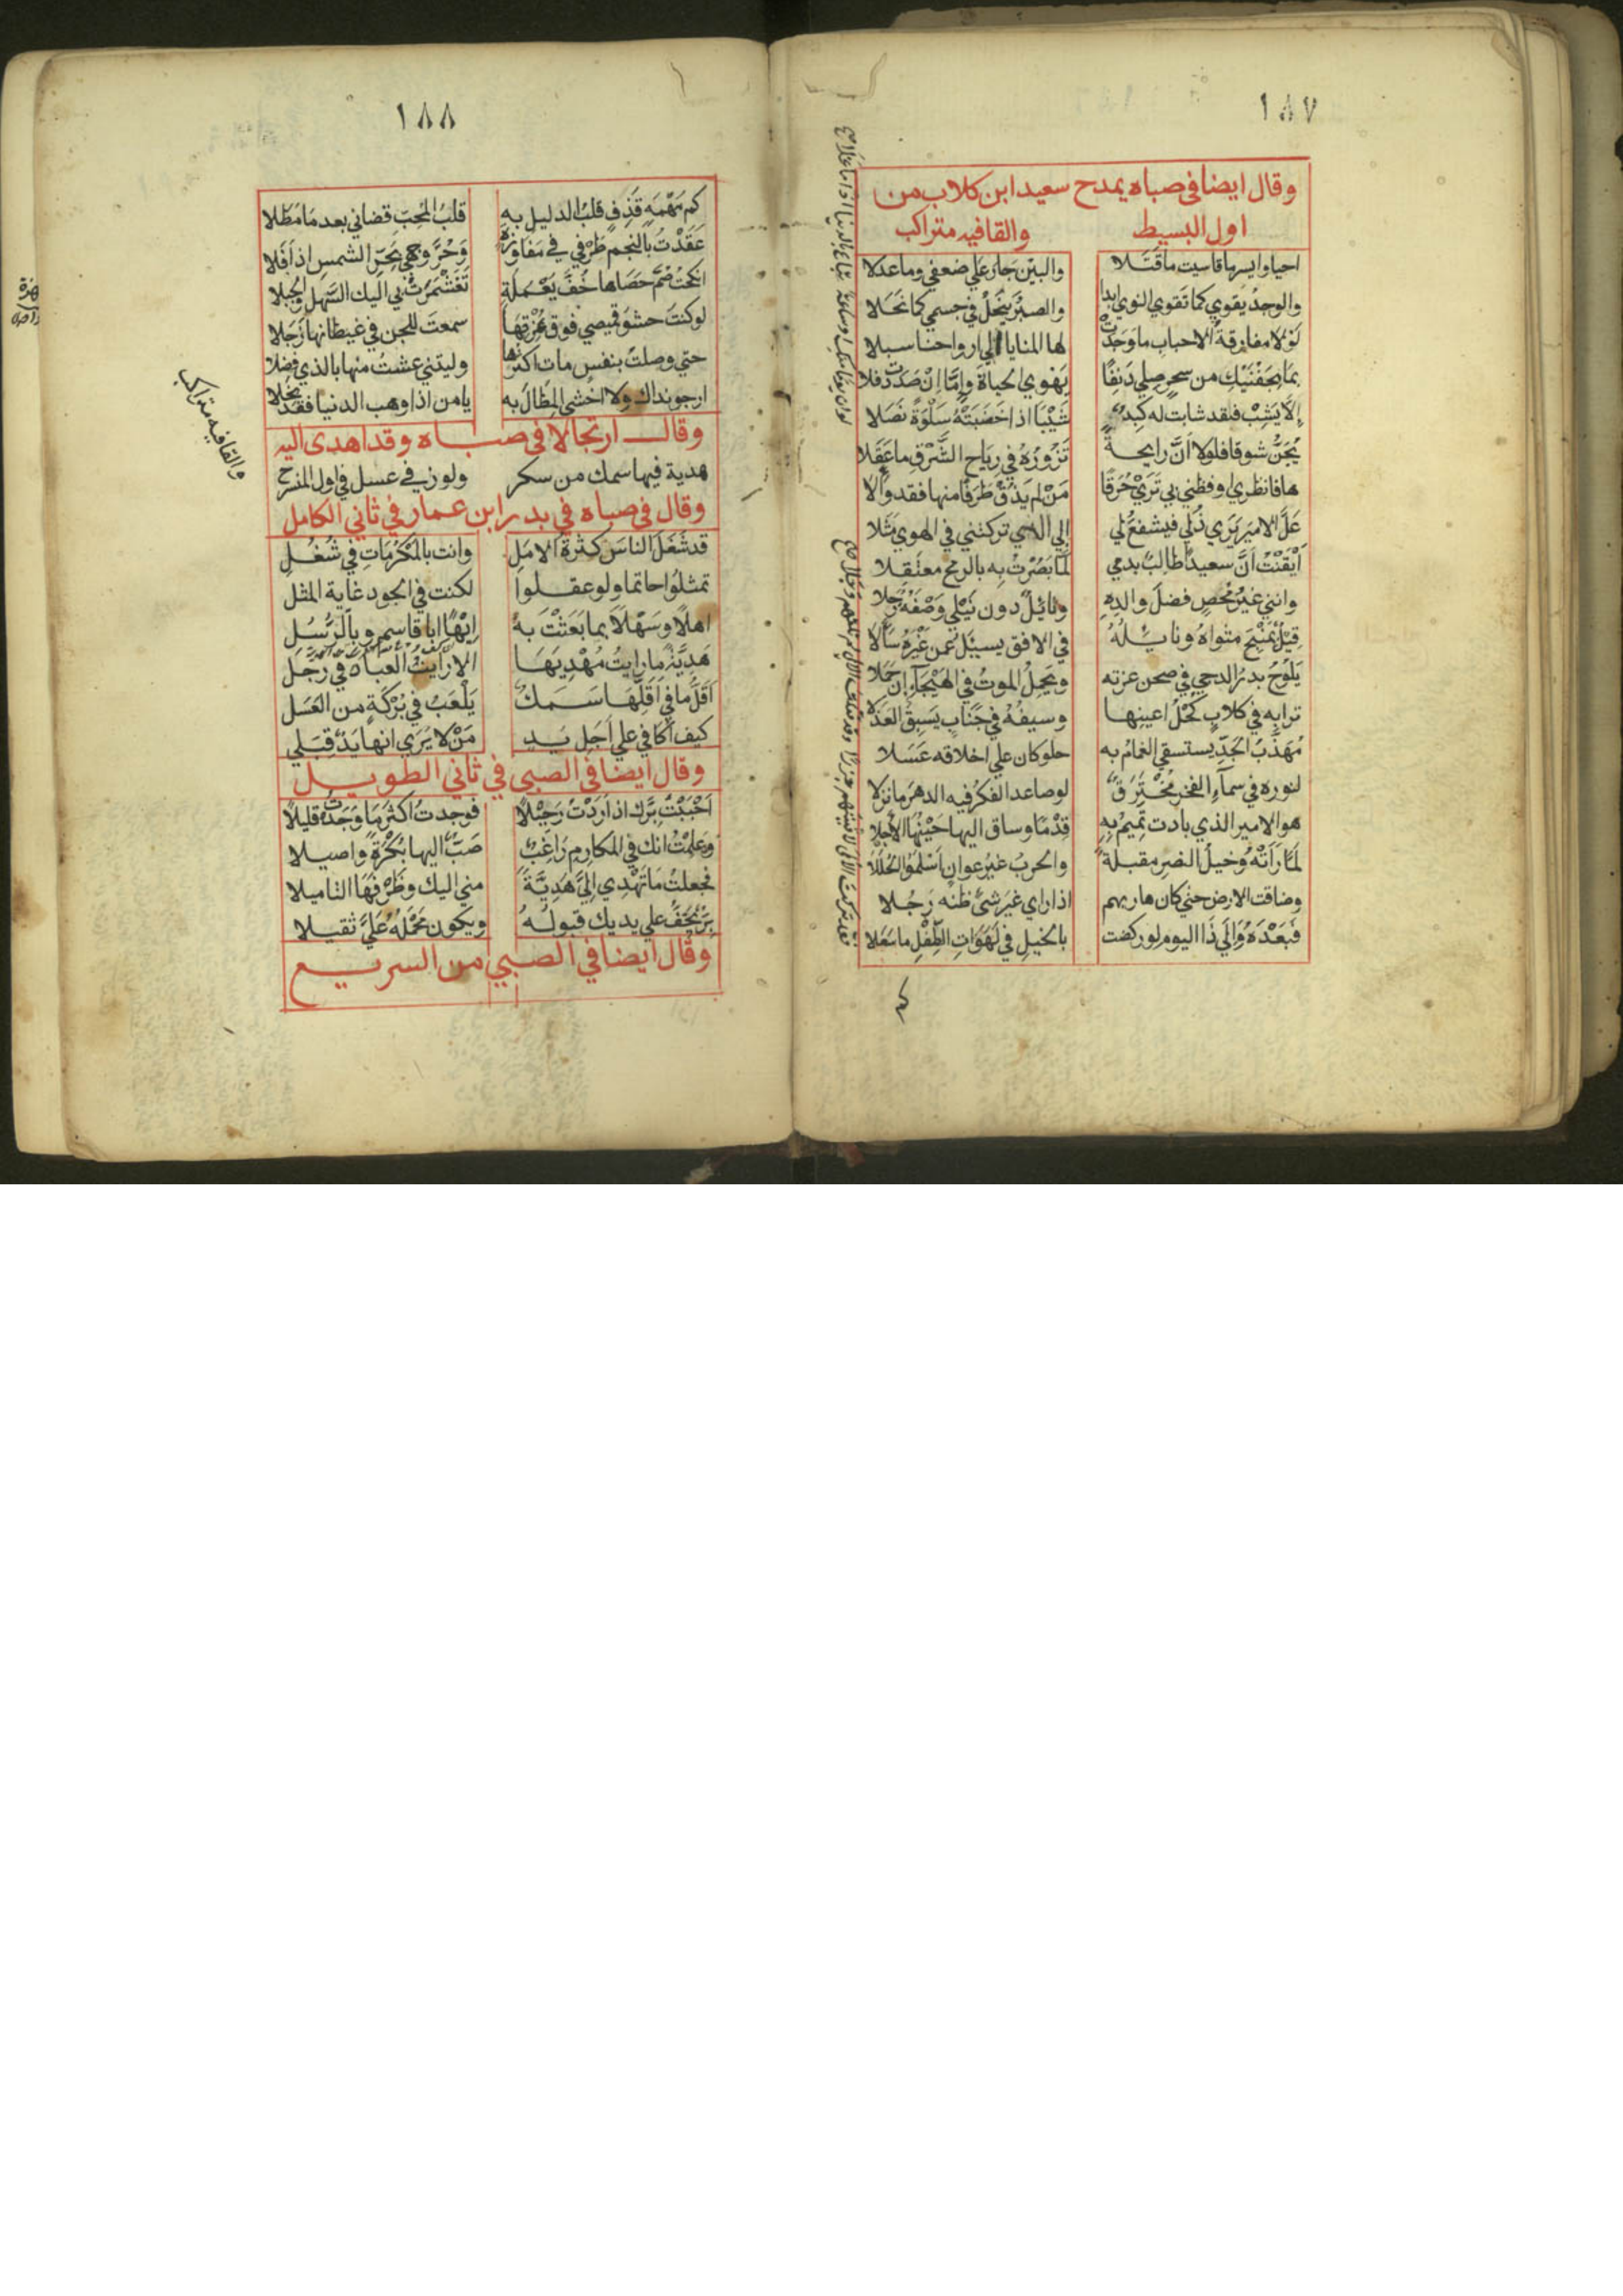 ١٨٧
وقال ايضا في صباه يمدح سعيد ابن كلاب من
اول البسيط والقافيه متراكب
احيا وايسر ما قاسيت ما قَتَلا والبَيْن جار علي ضعفي وما عدلا
والوجدُ يقوي كما تقوي النوي ابدا والصبرُ ينحَلُ في جسمي كما نَحَلا
لَوْلا مفارقةُ الاحباب ما وَجَدَتْ لها المنايا الي ارواحنا سبلا
بما بجَفْنَيْكِ من سحرٍ صِلي دَنِفًا يَهْوي الحياةَ وامَّا اِنْ صَدَدْتِ فلا
اِلَّا يَشِبْ فلقد شابت له كَبِدٌ شَيْبًا اذا خَضَبَتْهُ سَلْوَةٌ نَصَلا
يُجَنُّ شوقا فلولا اَنَّ رايحةً تَزُورُهُ في رِيَاحِ الشَّرْقِ ما عَقَلا
ها فانظري او فظني بي تَرَيْ حُرَقًا مَنْ لم يَذُقْ طَرَفًا منها فقد وَاَلا
عَلَّ الاميرَ يَرَي ذُلّي فيشفعُ لي الي التي تركتني في الهوي مَثَلا
اَيْقَنْتُ اَنَّ سعيدًا طالِبٌ بدمي لَمَّا بَصُرْتُ به بالرمح معتَقِلا
وانني غيرُ مُحْصٍ فضلَ والدِهِ ونائِلٌ دون نَيْلي وَصْفَهُ زُحَلا
قِيْلٌ بِمَنْبِجَ مثواهُ ونائِلُهُ في الافق يسئل عمن غَيْرَهُ سَاَلا
يَلُوحُ بدرُ الدجي في صحن غرته ويَحْمِلُ الموتُ في الهَيْجَاءِ اِنْ حَمَلا
ترابه في كلابٍ كُحْلُ اعينها وسيفُهُ في جَنَابٍ يَسْبِقُ العَذَلا
مُهَذَّبُ الجَدِّ يستسقي الغمامُ به حلو كان علي اخلاقه عَسَلا
لنوره في سماء الفخرِ مُخْتَرَقٌ لو صاعد الفكرُ فيه الدهرَ ما نزلا
هو الامير الذي بادت تميمُ بِهِ قِدْمًا وساق اليها حَيْنُهَا الاَجَلا
لَمَّا رَاَتْهُ وخيلُ النصرِ مقبلةٌ والحربُ غيرُ عوانٍ اَسْلَمُوا الحُلَلا
وضاقت الارض حتي كان هاربهم اذا راي غيرَ شئ ظنه رَجُلا
فَبَعْدَهُ وَاِلَي ذَا اليوم لو ركضت بالخيل في لَهَوَاتِ الطِّفْلِ ما سَعَلا
كم
١٨٨
كم مَهْمَهٍ قَذَفٍ قلبُ الدليل به قلبُ المُحِبِّ قضاني بعد ما مَطَلا
عَقَدْتُ بالنجم طَرْفي في مَفَاوِزِهِ وَحُرَّ وجهي بحَرِّ الشمس اذ اَفَلا
انكحتُ صُمَّ حَصَاها خُفَّ يَعْمَلَةٍ تَغَشْمَرَتْ بي اليك السَّهْل والجبلا
لو كنتَ حشوَ قميصي فوق نُمْرُقِهَا سمعتَ للجن في غيطانها زَجَلا
حتي وصلتُ بنفسٍ مات اكثرُها وليتني عشتُ منها بالذي فضلا
ارجو نداك ولا اخشي المِطَالَ به يا من اذا وهب الدنيا فقد بَخِلا
والقافيه متراكب
وقال ارتجالا في صباه وقد اهدى اليه
هدية فيها سمك من سكر ولوز في عسل في اول المنسرح
وقال في صباه في بدر ابن عمار في ثاني الكامل
قد شَغَلَ الناسَ كثرةُ الامَلِ وانت بالمَكْرُمَاتِ في شُغُلِ
تمثلُوا حاتما ولو عقلوا لكنت في الجود غاية المثل
اهلًا وسَهْلًا بما بَعَثْتَ بهِ اِيْهًا ابا قاسمٍ وبالرُّسُلِ
هَدِيَّةٌ ما رايتُ مُهْدِيَهَا الا رَاَيْتُ العبادَ في رَجُلِ
اَقَلُّ ما في اَقَلِّهَا سَمَكٌ يَلْعَبُ في بِرْكَةٍ من العَسَلِ
كيف اُكافي علي اَجَلِّ يَدٍ مَنْ لا يَرَي انها يَدٌ قِبَلي
وقال ايضا في الصبي في ثاني الطويل
اَحْبَبْتُ بِرَّك اذ اَرَدْتُ رَحِيْلًا فوجدت اكثرَ ما وَجَدْتُ قليلًا
وعلِمْتُ انك في المكارِمِ رَاغِبٌ صَبٌّ اليها بُكْرَةً واصيلا
فجعلتُ ما تُهْدِي اِلَيَّ هَدِيَّةً مني اليك وظَرْفَهَا التاميلا
بِرٌّ يَخِفُّ علي يديك قبولُهُ ويكون مَحْمِلُهُ عَلَيَّ ثقيلا
وقال ايضا في الصبي من السريع